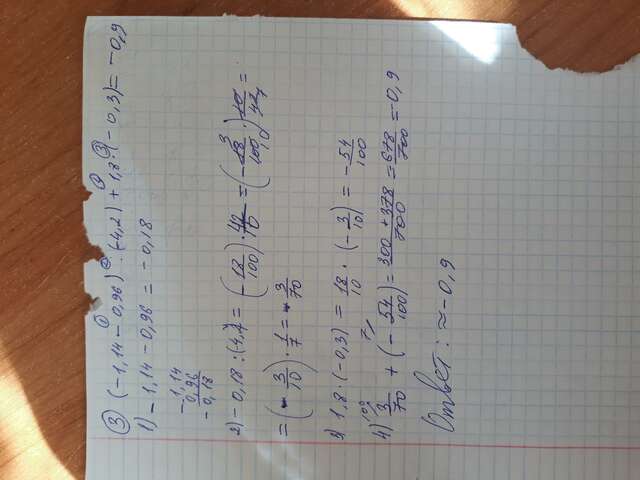 ③ (-1,14 - 0,96) : (-4,2) + 1,8 · (-0,3) = -0,9
1) -1,14 - 0,96 = -0,18
-1,14
0,96
-0,18
2) -0,18 : (4,2) = (-18/100) : 42/10 = (-18/100) · 10/42 =
= (-3/10) · 1/7 = -3/70
3) 1,8 · (-0,3) = 18/10 · (-3/10) = -54/100
4) 3/70 + (-54/100) = 300+378/700 = 678/700 = -0,9
Ответ: ≈ -0,9